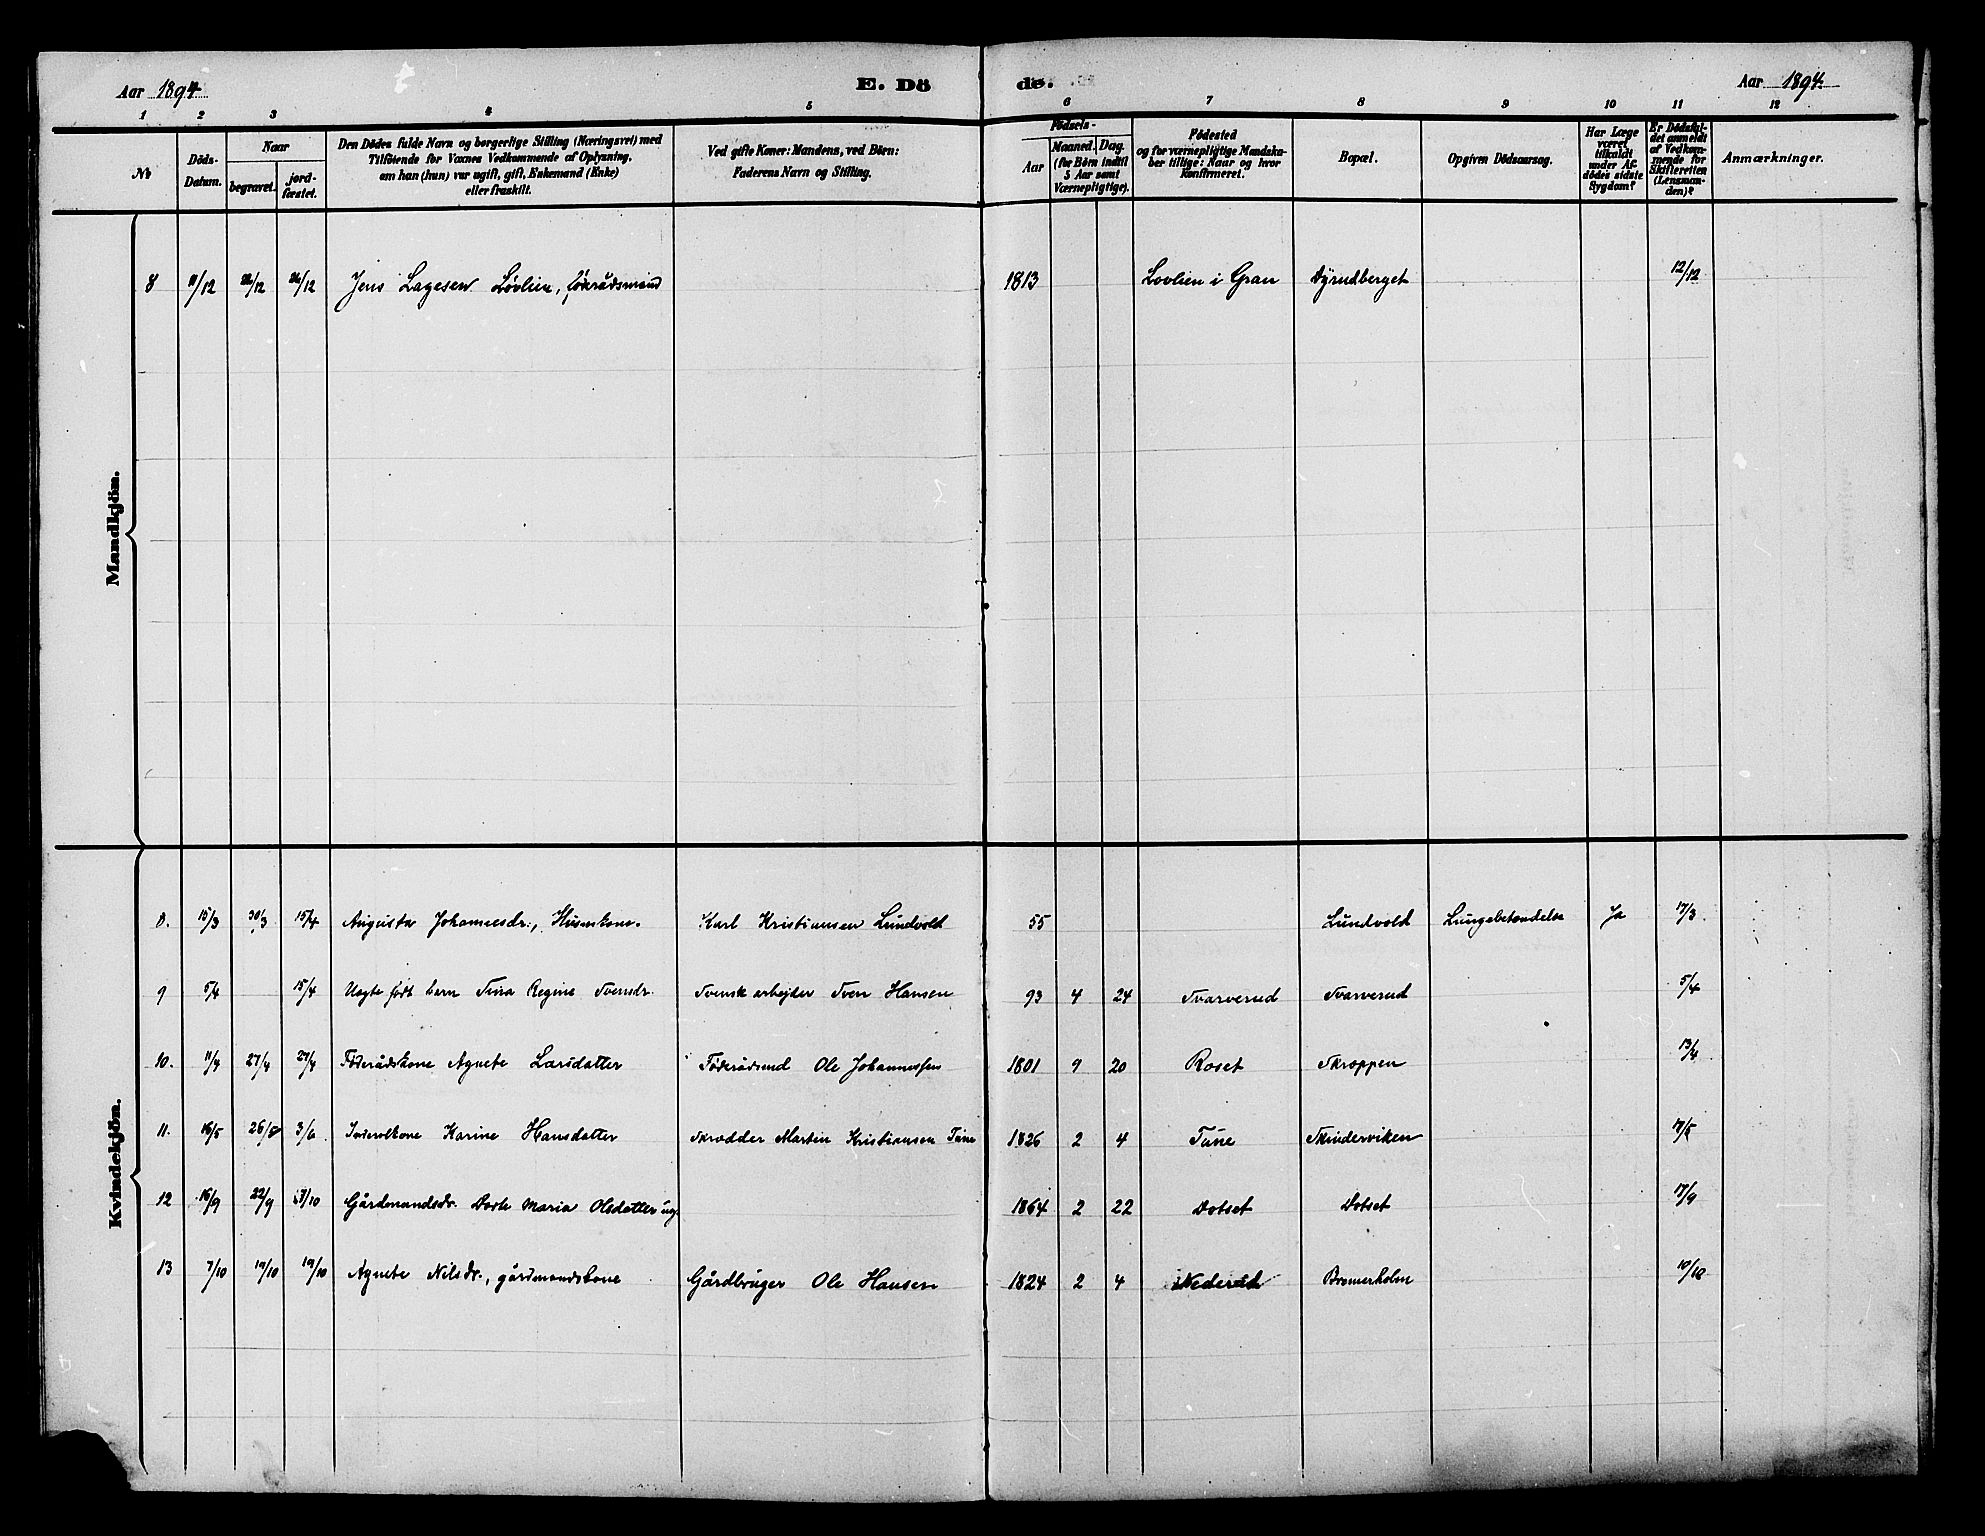 Aar 1894.
E. Dö de.
Aar 1894.
1 2 3 4 5 6 7 8 9 10 11 12
No
Döds-
Datum.
Naar
begravet.
jord-
fæstet.
Den Dödes fulde Navn og borgerlige Stilling (Næringsvei) med
Tilföiende for Voxnes Vedkommende af Oplysning,
om han (hun) var ugift, gift, Enkemand (Enke)
eller fraskilt.
Ved gifte Koner: Mandens, ved Börn:
Faderens Navn og Stilling.
Födsels-
Aar
Maaned. Dag.
(for Börn indtil
5 Aar samt
Værnepligtige).
Födested
og for værnepligtige Mandska-
ber tillige: Naar og hvor
Konfirmeret.
Bopæl.
Opgiven Dödsaarsag.
Har Læge
været
tilkaldt
under Af-
dödes sidste
Sygdom?
Er Dödsfal-
det anmeldt
af Vedkom-
mende for
Skifteretten
(Lensman-
den)?
Anmærkninger.
Mandkjön.
8 11/12 22/12 26/12 Jens Lagesen Løvlien, 1813 Lovlien i Gran Dyrudberget 12/12
Kvindekjön.
8. 15/3 30/3 15/4 Augusta Johannesdr., Husmkone. Karl Kristiansen Lundvold 55 Lundvold Lungebetændelse Ja 17/3
9 5/4 15/4 Uægte født barn Tina Regine Svensdr. Svensk arbejder Sven Hansen 93 4 24 Svarverud Svarverud 5/4
10. 11/4 27/4 27/4 Føderådskone Agnete Larsdatter Føderådsmd Ole Johannessen 1801 9 20 Roset Skroppen 13/4
11. 16/5 26/5 3/6 Karine Hansdatter Skrædder Martin Kristiansen Tune 1826 2 4 Tune Skinderviken 17/5
12 16/9 22/9 /10 Gårdmandsdr. Dorte Maria Olsdatter ug. 1864 2 22 Dotset Dotset 17/9
13 7/10 19/10 19/10 Agnete Nilsdr., gårdmandskone Gårdbruger Ole Hansen 1824 2 4 Bromerholm 10/10